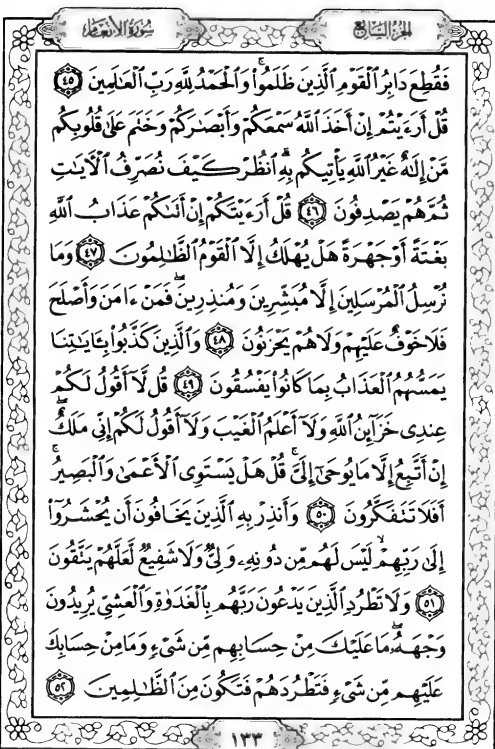 سُورَةُ الأَنْعَام
الجُزْءُ السَّابِع
فَقُطِعَ دَابِرُ ٱلْقَوْمِ ٱلَّذِينَ ظَلَمُوا۟ۚ وَٱلْحَمْدُ لِلَّهِ رَبِّ ٱلْعَـٰلَمِينَ ٤٥
قُلْ أَرَءَيْتُمْ إِنْ أَخَذَ ٱللَّهُ سَمْعَكُمْ وَأَبْصَـٰرَكُمْ وَخَتَمَ عَلَىٰ قُلُوبِكُم
مَّنْ إِلَـٰهٌ غَيْرُ ٱللَّهِ يَأْتِيكُم بِهِۗ ٱنظُرْ كَيْفَ نُصَرِّفُ ٱلْـَٔايَـٰتِ
ثُمَّ هُمْ يَصْدِفُونَ ٤٦ قُلْ أَرَءَيْتَكُمْ إِنْ أَتَىٰكُمْ عَذَابُ ٱللَّهِ
بَغْتَةً أَوْ جَهْرَةً هَلْ يُهْلَكُ إِلَّا ٱلْقَوْمُ ٱلظَّـٰلِمُونَ ٤٧ وَمَا
نُرْسِلُ ٱلْمُرْسَلِينَ إِلَّا مُبَشِّرِينَ وَمُنذِرِينَۖ فَمَنْ ءَامَنَ وَأَصْلَحَ
فَلَا خَوْفٌ عَلَيْهِمْ وَلَا هُمْ يَحْزَنُونَ ٤٨ وَٱلَّذِينَ كَذَّبُوا۟ بِـَٔايَـٰتِنَا
يَمَسُّهُمُ ٱلْعَذَابُ بِمَا كَانُوا۟ يَفْسُقُونَ ٤٩ قُل لَّآ أَقُولُ لَكُمْ
عِندِى خَزَآئِنُ ٱللَّهِ وَلَآ أَعْلَمُ ٱلْغَيْبَ وَلَآ أَقُولُ لَكُمْ إِنِّى مَلَكٌۖ
إِنْ أَتَّبِعُ إِلَّا مَا يُوحَىٰٓ إِلَىَّۚ قُلْ هَلْ يَسْتَوِى ٱلْأَعْمَىٰ وَٱلْبَصِيرُۚ
أَفَلَا تَتَفَكَّرُونَ ٥٠ وَأَنذِرْ بِهِ ٱلَّذِينَ يَخَافُونَ أَن يُحْشَرُوٓا۟
إِلَىٰ رَبِّهِمْۙ لَيْسَ لَهُم مِّن دُونِهِۦ وَلِىٌّ وَلَا شَفِيعٌ لَّعَلَّهُمْ يَتَّقُونَ
٥١ وَلَا تَطْرُدِ ٱلَّذِينَ يَدْعُونَ رَبَّهُم بِٱلْغَدَوٰةِ وَٱلْعَشِىِّ يُرِيدُونَ
وَجْهَهُۥۖ مَا عَلَيْكَ مِنْ حِسَابِهِم مِّن شَىْءٍ وَمَا مِنْ حِسَابِكَ
عَلَيْهِم مِّن شَىْءٍ فَتَطْرُدَهُمْ فَتَكُونَ مِنَ ٱلظَّـٰلِمِينَ ٥٢
١٣٣